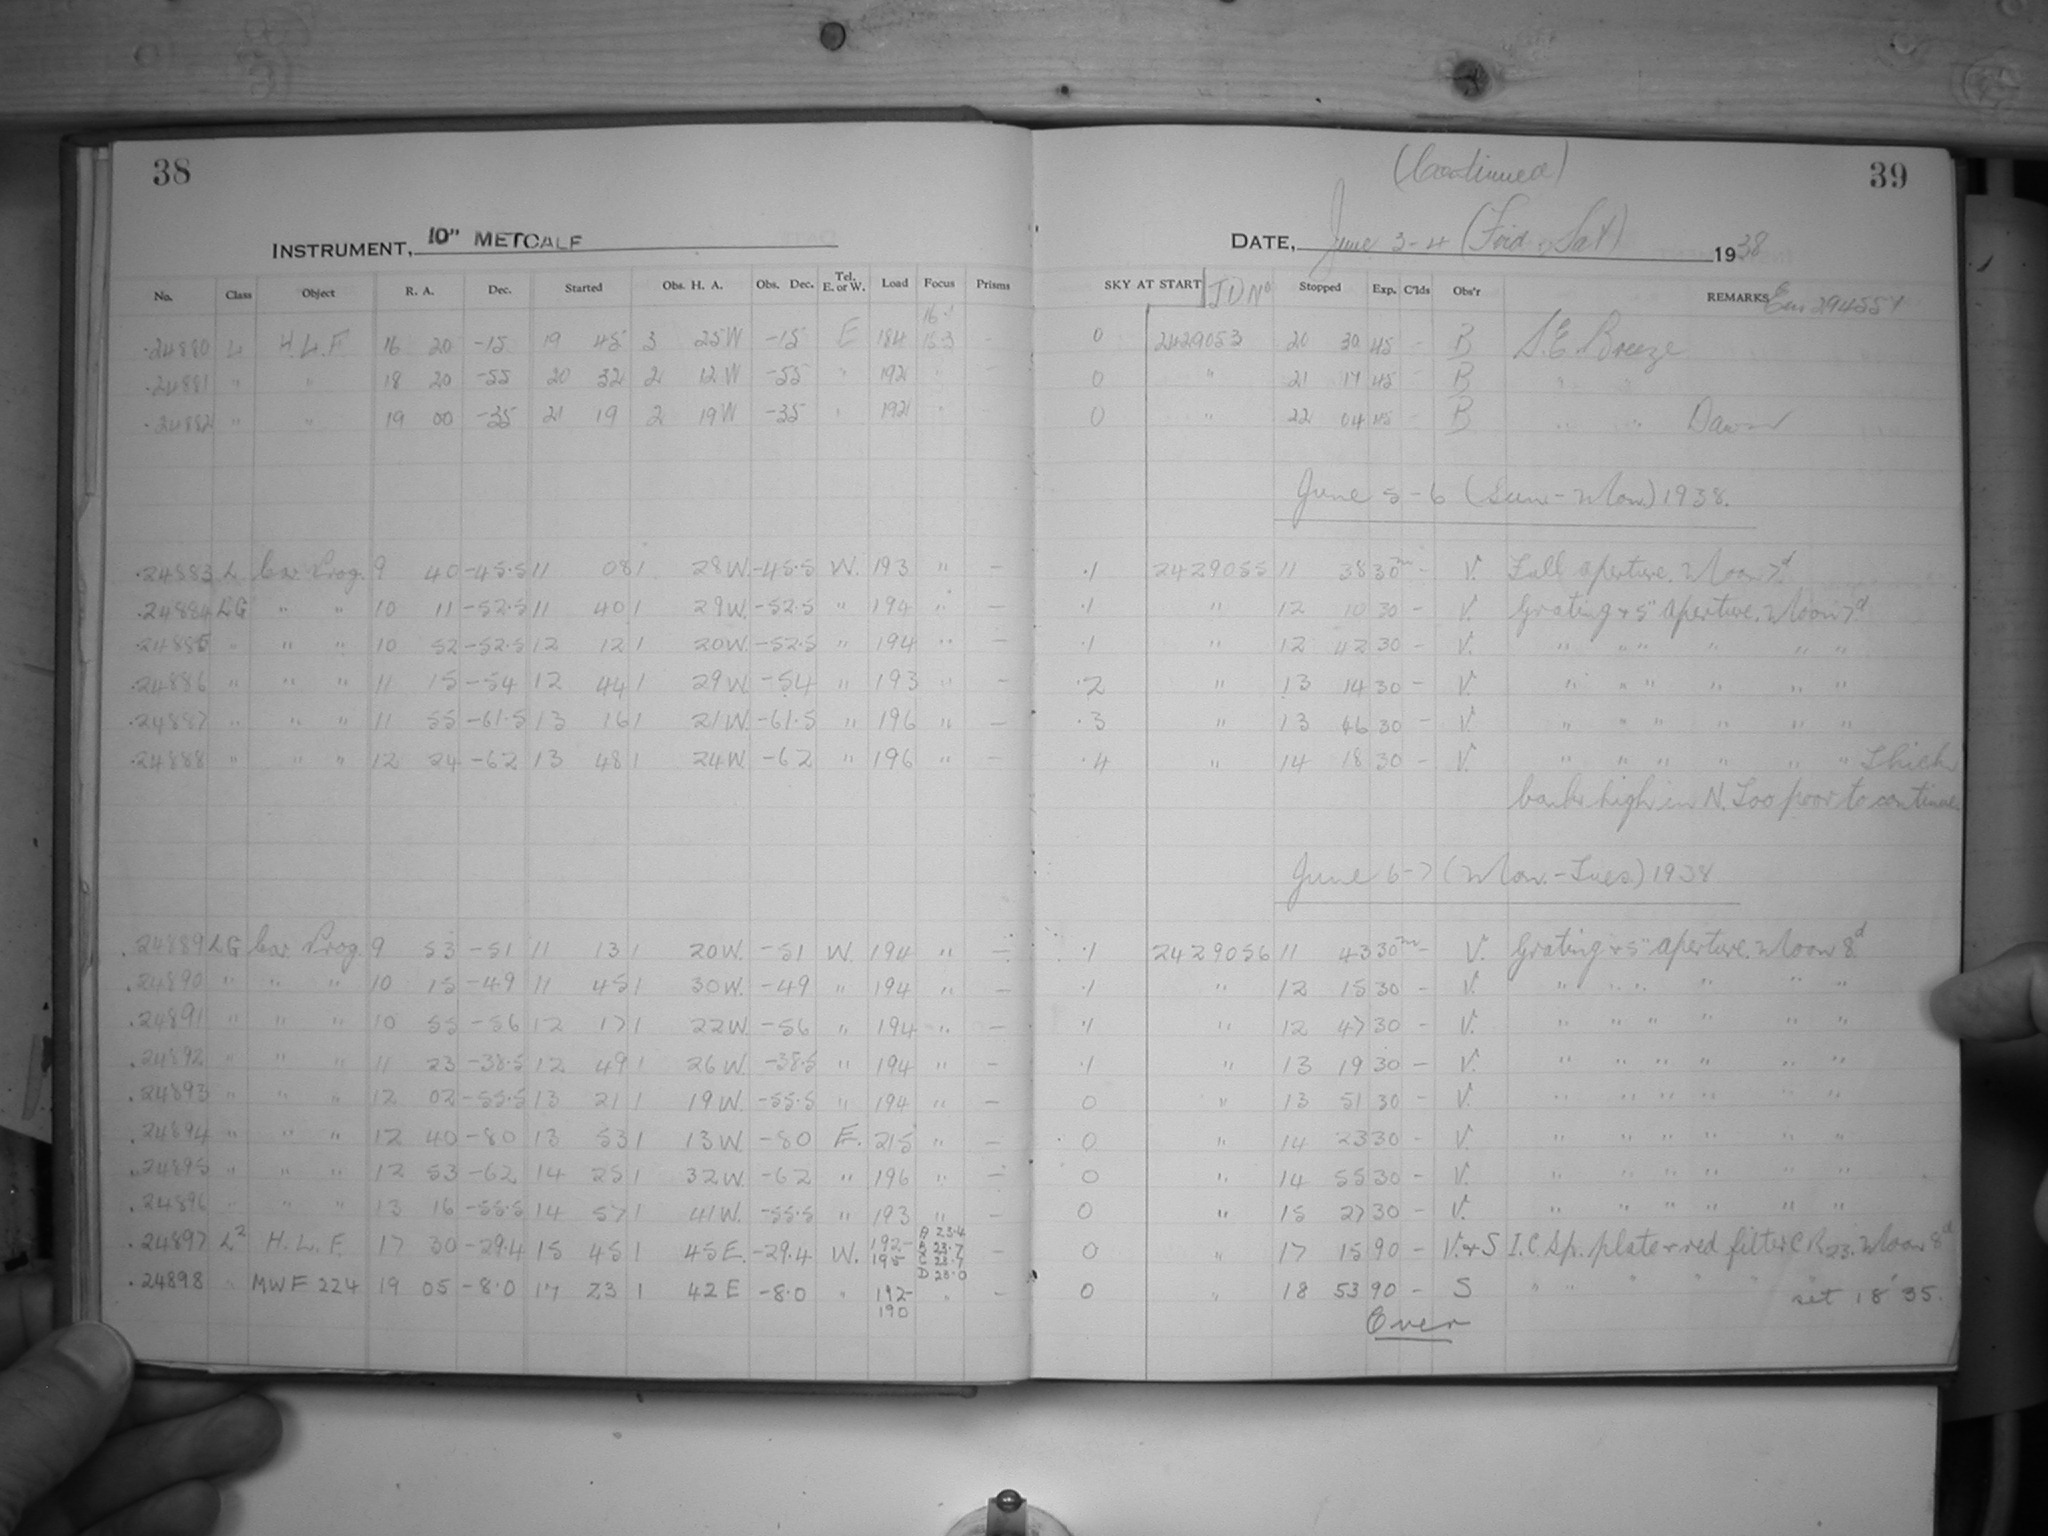 38
INSTRUMENT, 10" METCALF
No. Class Object R. A. Dec. Started Obs. H. A. Obs. Dec. Tel. E. or W. Load Focus Prisms
.24880 L H.L.F 16 20 -15 19 45 3 25W -15 E 184 16.3 -
.24881 " " 18 20 -55 20 32 2 12W -55 " 192 " -
.24882 " " 19 00 -35 21 19 2 19W -35 " 192 "
.24883 L Car Prog. 9 40 -45.5 11 08 1 28W. -45.5 W. 193 " -
.24884 LG " " 10 11 -52.5 11 40 1 29W. -52.5 " 194 " -
.24885 " " " 10 52 -52.5 12 12 1 20W. -52.5 " 194 " -
.24886 " " " 11 15 -54 12 44 1 29W. -54 " 193 " -
.24887 " " " 11 55 -61.5 13 16 1 21W. -61.5 " 196 " -
.24888 " " " 12 24 -62 13 48 1 24W. -62 " 196 " -
.24889 LG Car Prog. 9 53 -51 11 13 1 20W. -51 W. 194 " -
.24890 " " " 10 15 -49 11 45 1 30W. -49 " 194 " -
.24891 " " " 10 55 -56 12 17 1 22W. -56 " 194 " -
.24892 " " " 11 23 -38.5 12 49 1 26W. -38.5 " 194 " -
.24893 " " " 12 02 -55.5 13 21 1 19W. -55.5 " 194 " -
.24894 " " " 12 40 -80 13 53 1 13W. -80 E. 215 " -
.24895 " " " 12 53 -62 14 25 1 32W. -62 " 196 " -
.24896 " " " 13 16 -55.5 14 57 1 41W. -55.5 " 193 " -
.24897 L² H.L.F. 17 30 -29.4 15 45 1 45E. -29.4 W. 192-195 A 23.4 B 23.7 C 23.7 D 23.0 -
.24898 " MWF 224 19 05 -8.0 17 23 1 42E -8.0 " 192-190 " -
(Continued) 39
DATE, June 3-4 (Frid & Sat) 1938
SKY AT START JD No Stopped Exp. C'lds Obs'r REMARKS
0 2429053 20 30 45 - B S.E. Breeze
0 " 21 17 45 - B " "
0 " 22 04 45 - B " " Dawn
June 5-6 (Sun-Mon) 1938.
.1 2429055 11 38 30m - V. Full aperture. Moon 7d
.1 " 12 10 30 - V. Grating & 5" aperture. Moon 7d
.1 " 12 42 30 - V. " " " " " "
.2 " 13 14 30 - V. " " " " " "
.3 " 13 46 30 - V. " " " " " "
.4 " 14 18 30 - V. " " " " " " Thick
banks high in N. Too poor to continue
June 6-7 (Mon.-Tues.) 1938
.1 2429056 11 43 30m - V. Grating & 5" aperture. Moon 8d
.1 " 12 15 30 - V. " " " " " "
.1 " 12 47 30 - V. " " " " " "
.1 " 13 19 30 - V. " " " " " "
0 " 13 51 30 - V. " " " " " "
0 " 14 23 30 - V. " " " " " "
0 " 14 55 30 - V. " " " " " "
0 " 15 27 30 - V. " " " " " "
0 " 17 15 90 - V. & S I.C. Sp. plate & red filter C R 23. Moon 8d
0 " 18 53 90 - S " " " " " " set 18 35.
Over